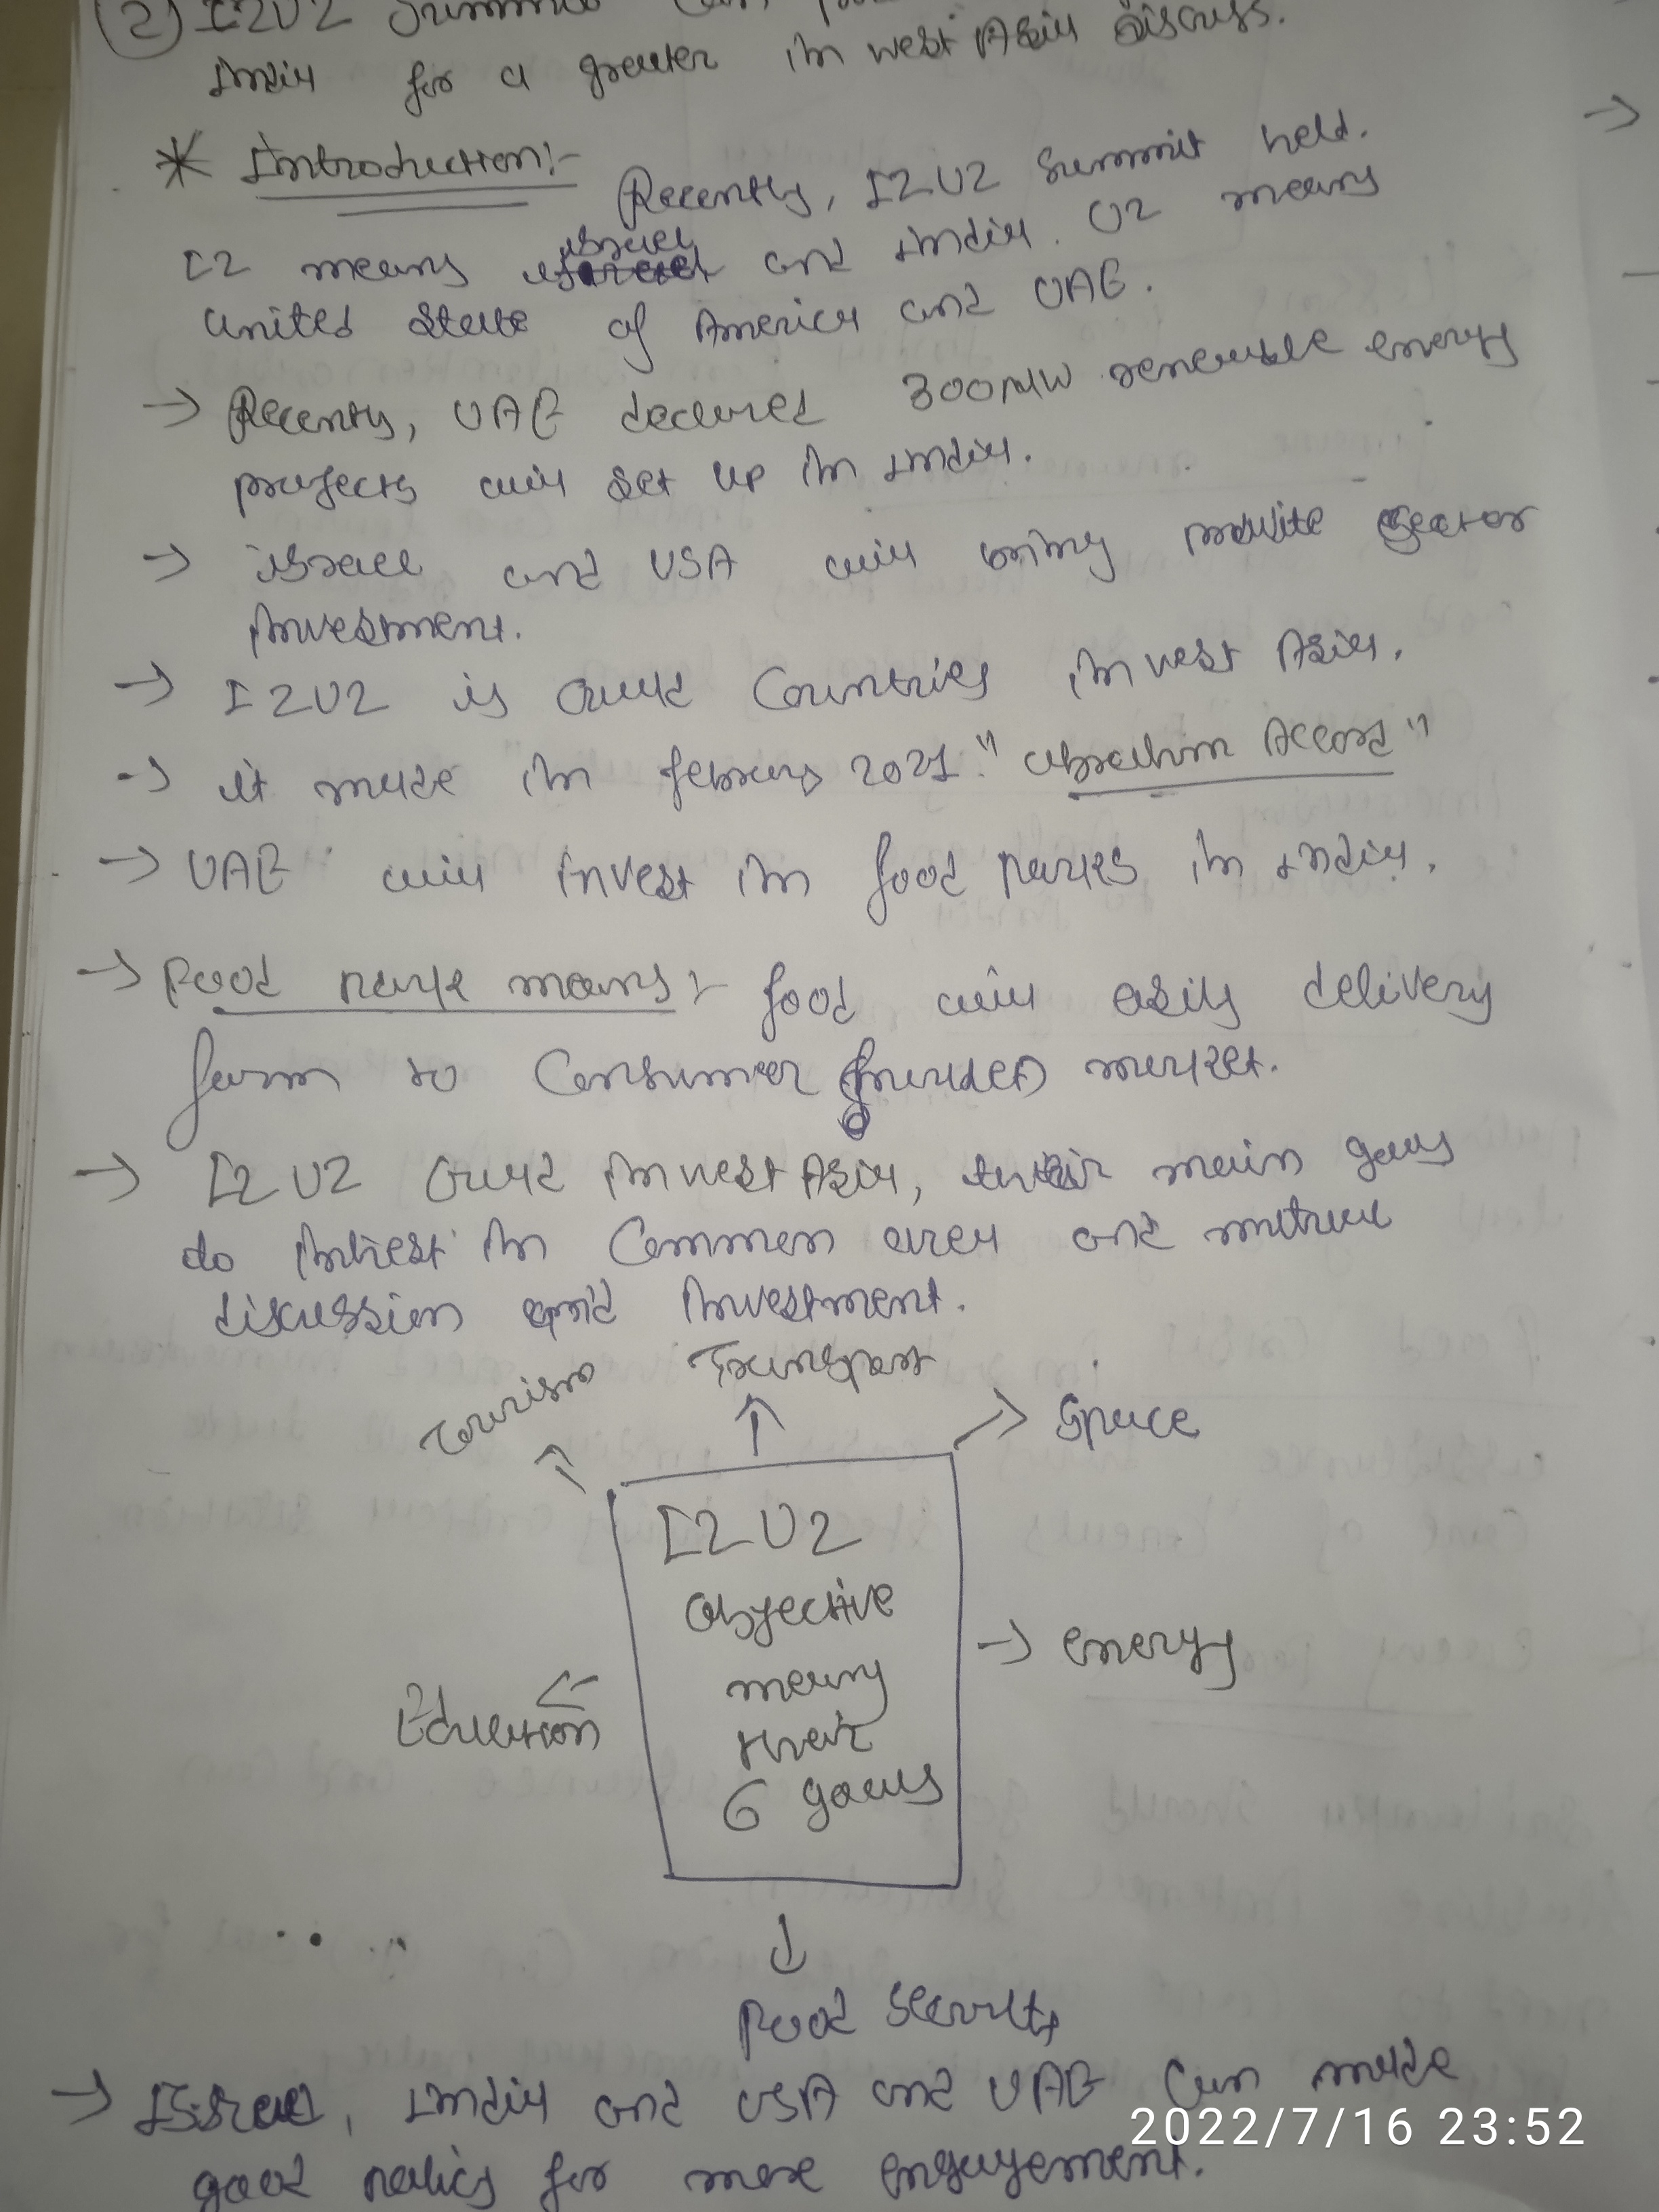 (2) I2U2 Summit can
India for a greater in west Asia discuss.
* Introduction:-
Recently, I2U2 Summit held.
israel
I2 means and India. U2 means
united State of America and UAE.
→ Recently, UAE declared 300MW renewable energy
projects will set up in India.
→ israel and USA will bring private sector
investment.
→ I2U2 is Quad Countries in west Asia.
→ it made in 2021. "abraham Accord"
→ UAE will invest in food parks in India.
→ Food park means:- food will easily delivery
farm to Consumer market.
→ I2U2 Quad in west Asia, their main goals
do in Common area and
discussion and investment.
Tourism
Transport
Space
I2U2
objective
means
their
6 goals
→ energy
Education
Food security
→ Israel, India and USA and UAE Can made
good policy for more engagement.
2022/7/16 23:52